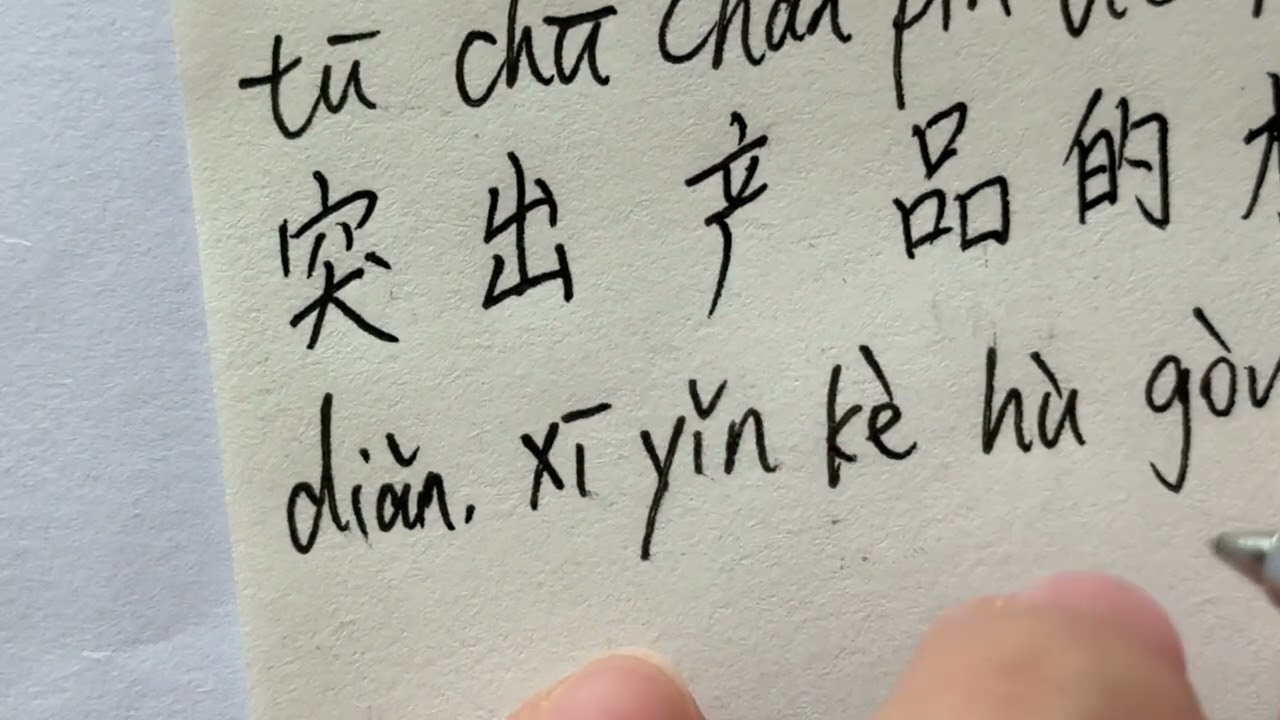 tū chū chǎn pǐn
突出产品的
diǎn, xī yǐn kè hù gòu